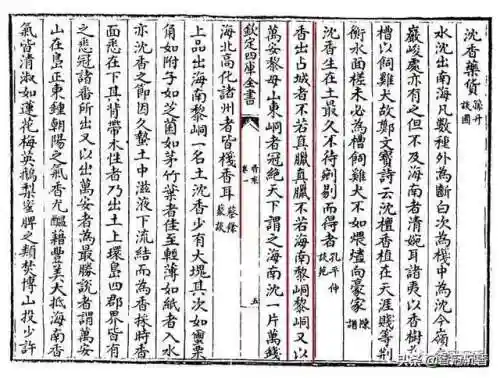 沈香藥貨 孫升談圃
水沈出南海凡數種外為斷白次為棧中為沈今嶺
巖峻處亦有之但不及海南者清婉耳諸夷以香樹為
槽以飼雞犬故鄭文寶詩云沈檀香植在天涯賤等荆
衡水面槎未必為槽飼雞犬不如煨爐向豪家 陳譜
沈香生在土最久不待剜剔而得者 孔平仲談苑
香出占城者不若真臘真臘不若海南黎峒黎峒又以
萬安黎母山東峒者冠絕天下謂之海南沈一片萬錢
欽定四庫全書 香乘 卷一 五
海北高化諸州者皆棧香耳 蔡絛叢談
上品出海南黎峒一名土沈香少有大塊其次如繭栗
角如附子如芝菌如茅竹葉者佳至輕薄如紙者入水
亦沈香之節因久蟄土中滋液下流結而為香採時香
面悉在下其背帶木性者乃出土上環島四郡界皆有
之悉冠諸番所出又以出萬安者為最勝說者謂萬安
山在島正東鍾朝陽之氣香尤醖藉豐美大抵海南香
氣皆清淑如蓮花梅英鵝梨蜜脾之類焚博山投少許
头条